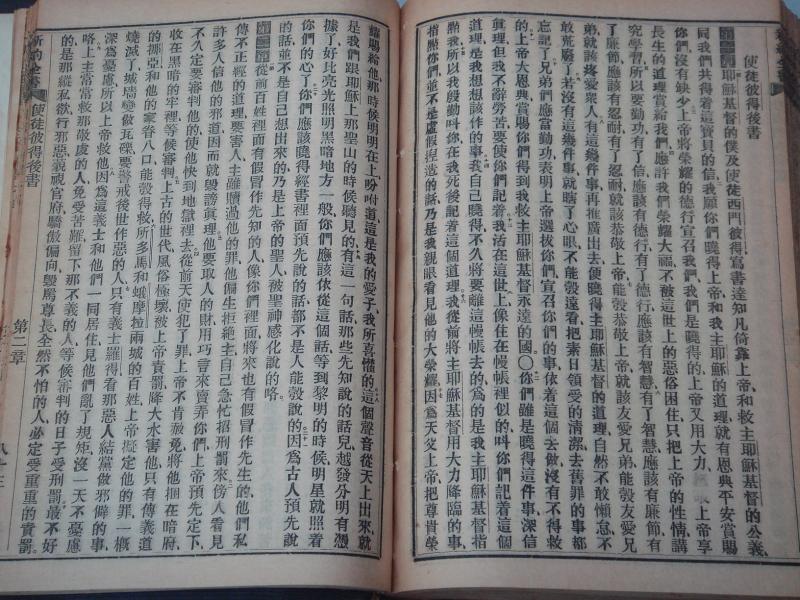 使徒彼得後書
耶穌基督的僕及使徒西門彼得寫書達知凡倚靠上帝和救主耶穌基督的公義
同我們共得着這寶貝的信我願你們曉得上帝和我主耶穌就有恩典平安賞賜
你們沒有缺少上帝將榮耀的德行宣召我們我們是曉得的上帝又用大力上帝享
長生的道理賞給我們應許我們榮耀大福不被這世上的惡俗困住只把上帝的性情講
究學習所以要勤功有了信應該有德行有了德行應該有智慧有了智慧應該有廉節有
了廉節應該有忍耐有了忍耐就該恭敬上帝能彀恭敬上帝就該友愛兄弟能彀友愛兄
弟就該疼愛衆人有這幾件事再推廣出去便曉得主耶穌基督的道理自然不敢懶怠不
敢荒廢了若沒有這幾件事就瞎了心眼不能彀遠看把素日領受的清潔去舊罪的事都
忘記了兄弟們應當勤功表明上帝選拔你們宣召你們的事依着這個去做沒有不得救
的上帝大開恩典賞賜你們得到我救主耶穌基督永遠的國○你們雖是曉得這件事深信
眞理但我不辭勞苦要使你們記着我活在這世上像住在幔帳裡似的叫你們記着這個
道理是我想想該作的事我自己曉得不久將要離這幔帳去的爲的是我主耶穌基督指
點我所以我殷勤叫你在我死後記着這個道理我從前將主耶穌基督用大力降臨的事
指點你們並不是虛假捏造的話乃是我親眼看見他的大榮耀因爲天父上帝把尊貴榮
耀賜給他那時候明明在上吩咐道這是我的愛子我所喜懽的這個聲音從天上出來就
是我們跟耶穌上那聖山的時候聽見的有這一句話那些先知說的話兒越發分明有憑
據了好比亮光照明黑暗地方一般你們應該依從這個話等到黎明的時候明星就照着
你們的心了你們應該曉得經書裡面預先說的話都不是人能彀說的因爲古人預先說
的話並不是自己想出來的乃是上帝的聖人被聖神感化說的咯
從前百姓裡面有假冒作先知的人像你們裡面將來也有假冒作先生的他們私
傳不正經的道理要害人主雖贖過他的罪他偏生拒絕主自己急忙招刑罰來傍人看見
許多人信他的邪道因而就毀謗眞理他要取人的財用巧言來賣弄你們上帝預先定下
不久定要審判他的使他快到地獄裡去從前天使犯了罪上帝不肯赦免將他捆在暗府
收在黑暗的牢裡等候審判上古的世代風俗極壞被上帝責罰降大水害他只有傳義道
的挪亞和他的家眷八口能彀得救所多馬和蛾摩拉兩城的百姓上帝擬定他的罪一概
燒滅了城墻變做瓦礫要警戒後世作惡的人只有義士羅得看那惡人結黨做邪僻的事
深爲憂慮所以上帝救他因爲這義士和他們一同居住見他們亂了規矩沒一天不憂慮
咯上主常常救那敬虔的人免受苦難留下那不義的人等候審判的日子受刑罰最不好
的是那縱私欲行邪惡藐視官府驕傲偏向毀罵尊長全然不怕的人必定受重重的責罰
新約全書 使徒彼得後書 第二章